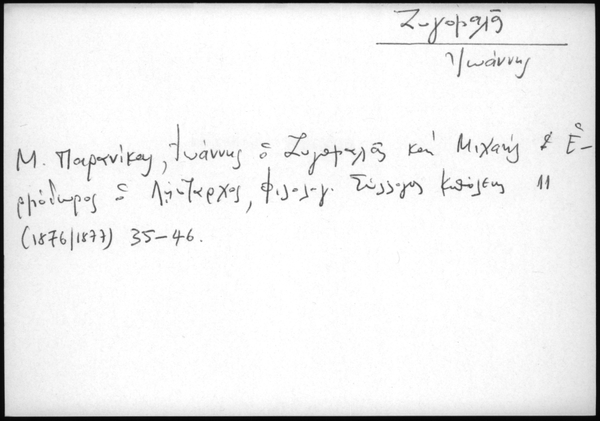 Ζυγομαλᾶ
Ἰωάννης
Μ. Παρανίκου, Ἰωάννης ὁ Ζυγομαλᾶς καὶ Μιχαὴλ ὁ Ἑ-
ρμόδωρος ὁ Λήσταρχος, Φιλολογ. Σύλλογος Κπόλεως 11
(1876/1877) 35-46.